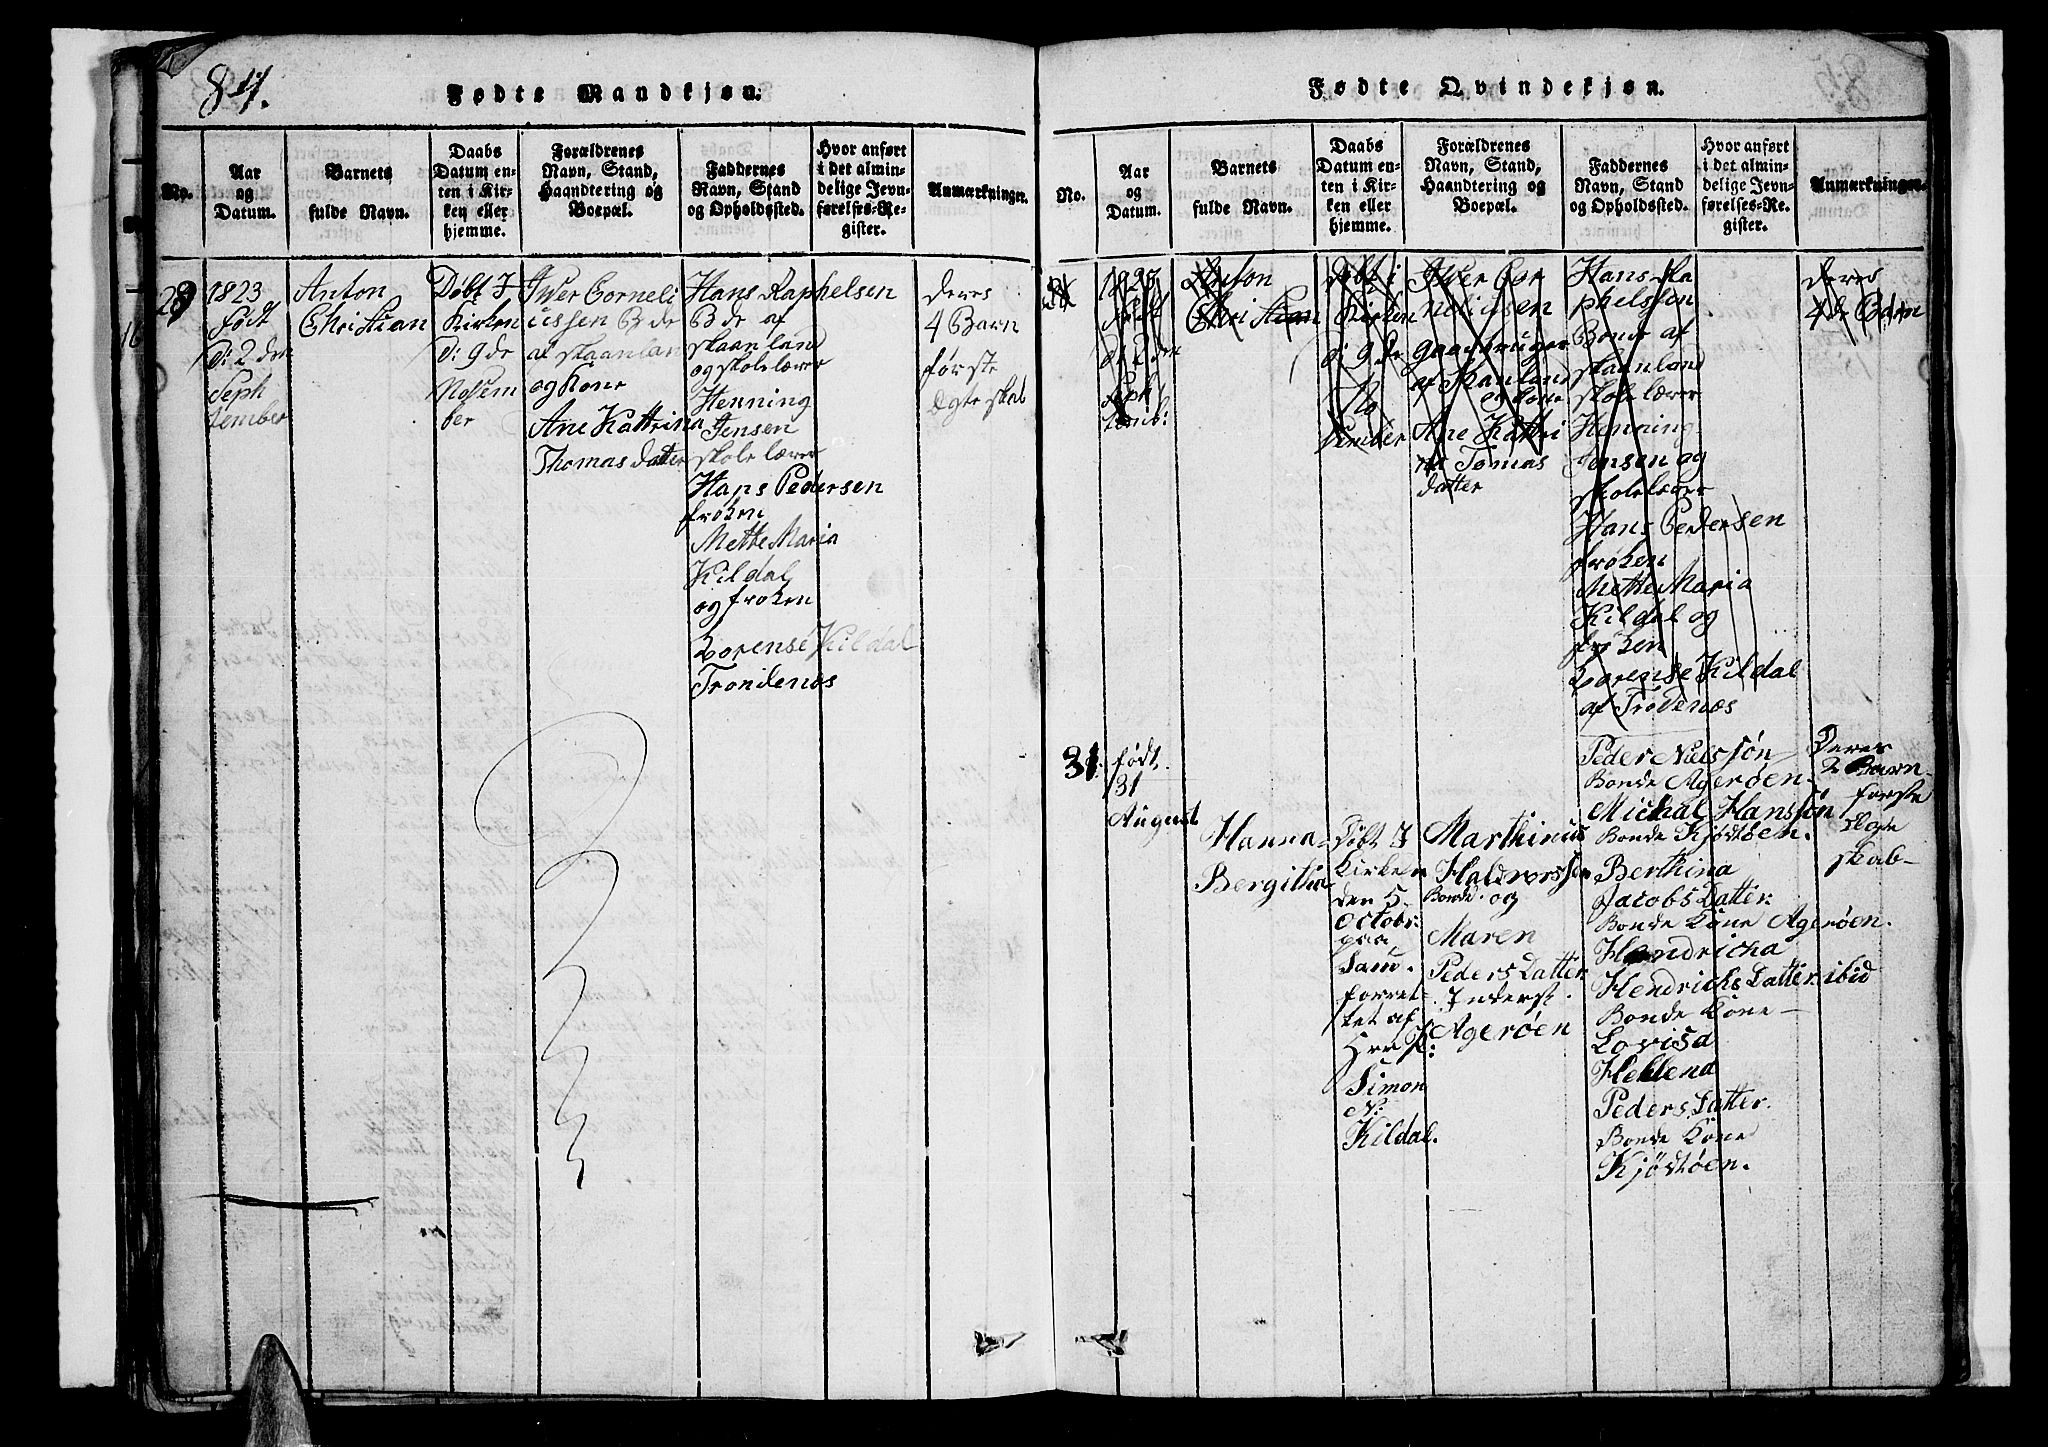 84.
Fødte Mandkjøn.
No.
Aar
og
Datum.
Barnets
fulde Navn.
Daabs
Datum en-
ten i Kir-
ken eller
hjemme.
Forældrenes
Navn, Stand,
Haandtering og
Boepæl.
Faddernes
Navn, Stand
og Opholdssted.
Hvor anført
i det almin-
delige Jevn-
førelses-Re-
gister.
Anmærkninger.
1823
født
D: 2 den
Sept
tember
Anton
Christian
Døbt I
Kirken
D: 9 de
Nofem
ber
Iver Corneli
ussen B de
af skaanlan
og Kone
Ane Kattrina
Thomas datter
Hans Raphelsen
B de af
skaanland
og skolelærer
Henning
Jensen
skolelærer
Hans Pedersen
frøken
Mette Maria
Kildal
og frøken
Lorense Kildal
Trondenæs
deres
4 Barn
første
Egteskab
Fødte Qvindekjøn.
No.
Aar
og
Datum.
Barnets
fulde Navn.
Daabs
Datum en-
ten i Kir-
ken eller
hjemme.
Forældrenes
Navn, Stand,
Haandtering og
Boepæl.
Faddernes
Navn, Stand
og Opholdssted.
Hvor anført
i det almin-
delige Jevn-
førelses-Re-
gister.
Anmærkninger.
født
Anton
Christian
døbt i
Kirken
D 9 de
No
vember
Iver Cor
neliusen
gaardbruger
af Skanland
og Kone
Ane Kattri
na Tomas
datter
Hans Ra
phelssen
Bonde af
skaanland
skolelærer
Henning
Jensen og
skolelærer
Hans Pedersen
frøken
Mette Maria
Kildal og
frøken
Lorense Kildal
af Trodenæs
deres
4 de Barn
31.
født
31
August
Hanna
Bergitha
Døbt I
Kirken
den 5
Octobr:
paa
Sam.
forret-
tet af
Hrr P:
Simon
N:
Kildal.
Marthinus
Haldvorssen
Bonde og
Maren
Peders Datter
Inderst.
Agerøen
Peder Nielssøn
Bonde Agerøen.
Michal Hanssøn
Bonde Kjøttøen.
Berthina
Jacobs Datter
Bonde Kone Agerøen.
Hendricha
Hendrichs Datter ibid
Bonde Kone
Lovisa
Hellena
Peders Datter.
Bonde Kone
Kjøttøen.
Deres
2 Barn
første
Egte
skab